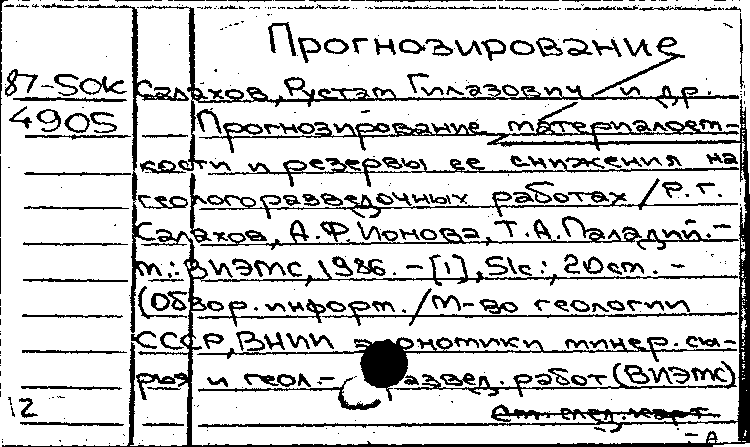 Прогнозирование
87-50к Салахов, Рустам Гилазович и др.
4905 Прогнозирование материалоем-
кости и резервы ее снижения на
геологоразведочных работах / Р.Г.
Салахов, А.Ф. Ионова, Т.А. Паладий. -
м.: ВИЭМС, 1986. - [1], 51с.; 20см. -
(Обзор. информ. / М-во геологии
СССР, ВНИИ экономики минер. сы-
рья и геол.- развед. работ (ВИЭМС)
12 См. след. карт.
- А